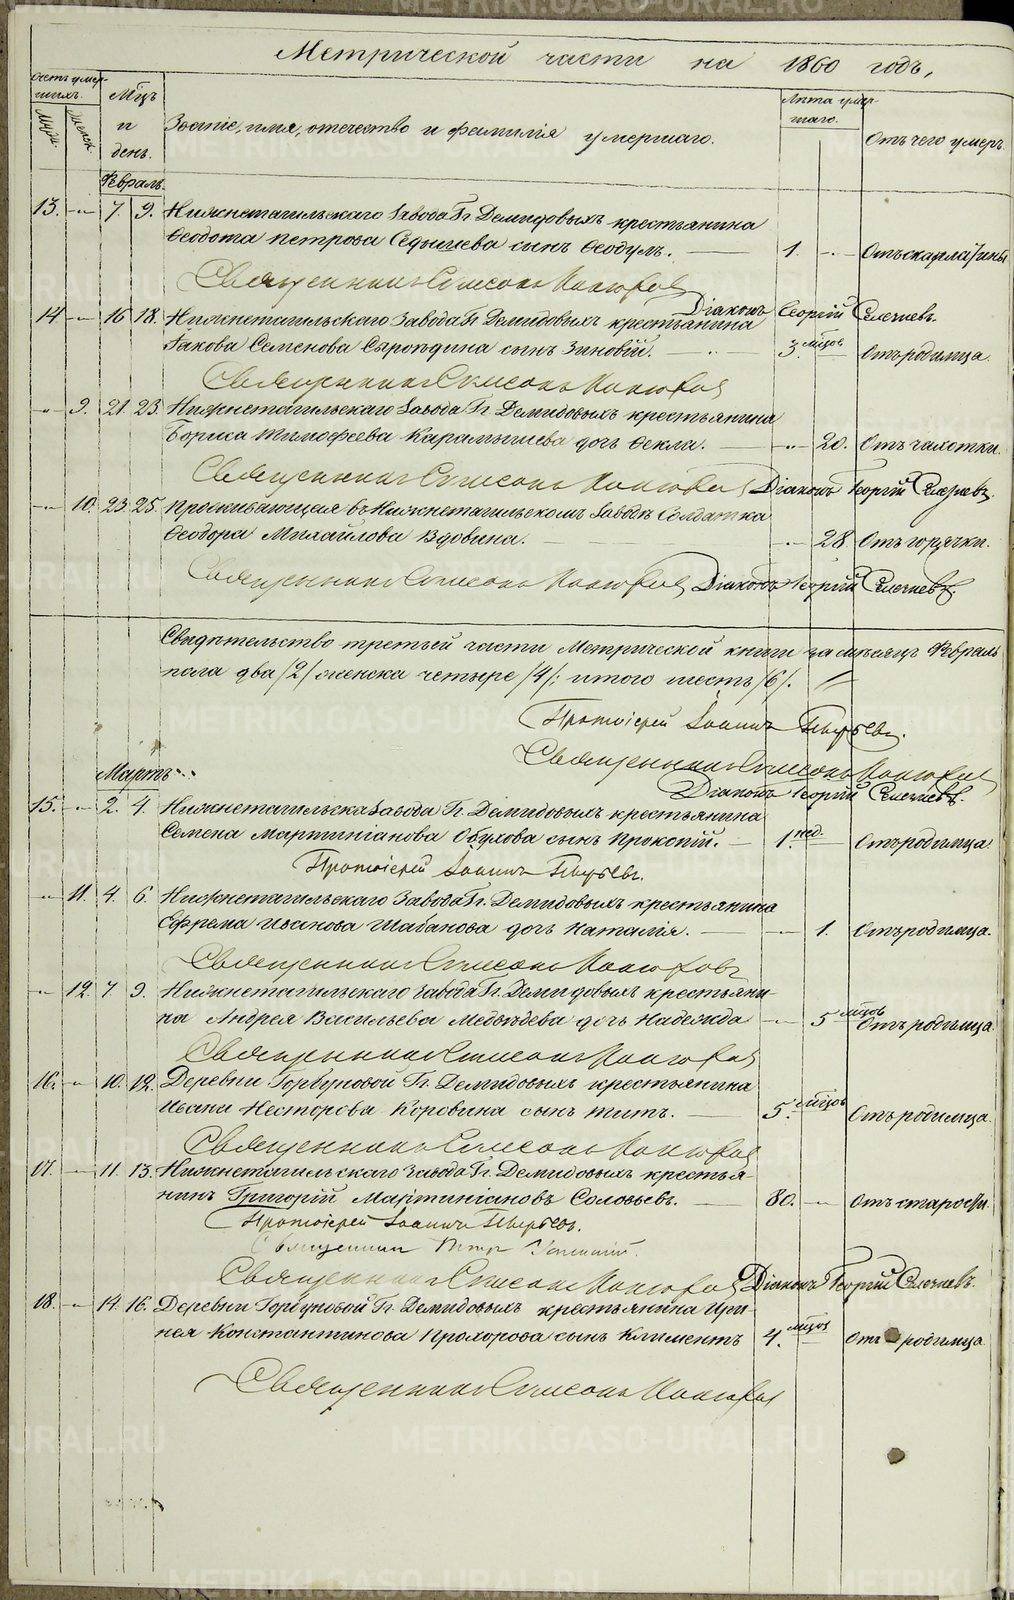 Метрической части на 1860 годъ,
Счетъ умер-
шихъ.
Муж.
Женск.
Мѣцъ
и
день.
Званіе, имя, отечество и фамилія умершаго.
Лѣта умер-
шаго.
Отъ чего умеръ
Февраль.
13. -„- 7. 9. Нижнетагильскаго Завода Гг. Демидовыхъ крестьянина
Ѳеодота Петрова сынъ Ѳеодулъ. 1. -„- Отъ скарлатины
Священникъ Симеонъ
14 -„- 16 18. Нижнетагильскаго Завода Гг. Демидовыхъ крестьянина
Діаконъ Георгій Селезневъ.
Іакова Семенова сынъ Зиновій. 3 мѣцовъ Отъ родимца.
Священникъ Симеонъ
-„- 9. 21. 23. Нижнетагильскаго Завода Гг. Демидовыхъ крестьянина
Бориса Тимофеева Карамышева дочь Ѳекла. -„- 20. Отъ чахотки.
Священникъ Симеонъ Діаконъ Георгій Селезневъ.
-„- 10. 23. 25. Проживающая въ Нижнетагильскомъ Заводѣ Солдатка
Ѳеодора Михайлова Вдовина. -„- 28. Отъ горячки.
Священникъ Симеонъ Діаконъ Георгій Селезневъ.
Свидѣтельство третьей части Метрической книги за мѣсяцъ Февраль
пола два /2/ женска четыре /4/; итого шесть /6/.
Протоіерей Іоаннъ
Священникъ Симеонъ
Діаконъ Георгій Селезневъ.
Мартъ
15. -„- 2. 4. Нижнетагильска Завода Гг. Демидовыхъ крестьянина
Семена Мартиніанова Обухова сынъ Прокопій. 1. нед. Отъ родимца.
Протоіерей Іоаннъ
-„- 11. 4. 6. Нижнетагильскаго Завода Гг. Демидовыхъ крестьянина
Ефрема Иванова Шабанова дочь Наталія. -„- 1. Отъ родимца.
Священникъ Симеонъ
-„- 12. 7. 9. Нижнетагильскаго Завода Гг. Демидовыхъ крестьяни-
на Андрея Васильева Медвѣдева дочь Надежда -„- 5 мѣцовъ Отъ родимца.
Священникъ Симеонъ
16. -„- 10. 12. Деревни Горбуновой Гг. Демидовыхъ крестьянина
Ивана Несторова Коровина сынъ Титъ. 5. мѣцовъ Отъ родимца.
Священникъ Симеонъ
17. -„- 11. 13. Нижнетагильскаго Завода Гг. Демидовыхъ крестья-
нинъ Григорій Мартиніановъ Соловьевъ. 80. -„- Отъ старости.
Протоіерей Іоаннъ
Священникъ Петръ
Священникъ Симеонъ Діаконъ Георгій Селезневъ.
18. -„- 14. 16. Деревни Горбуновой Гг. Демидовыхъ крестьянина Ири-
нея Константинова Прохорова сынъ Климентъ 4. мѣцов Отъ родимца.
Священникъ Симеонъ
METRIKI.GASO-URAL.RU